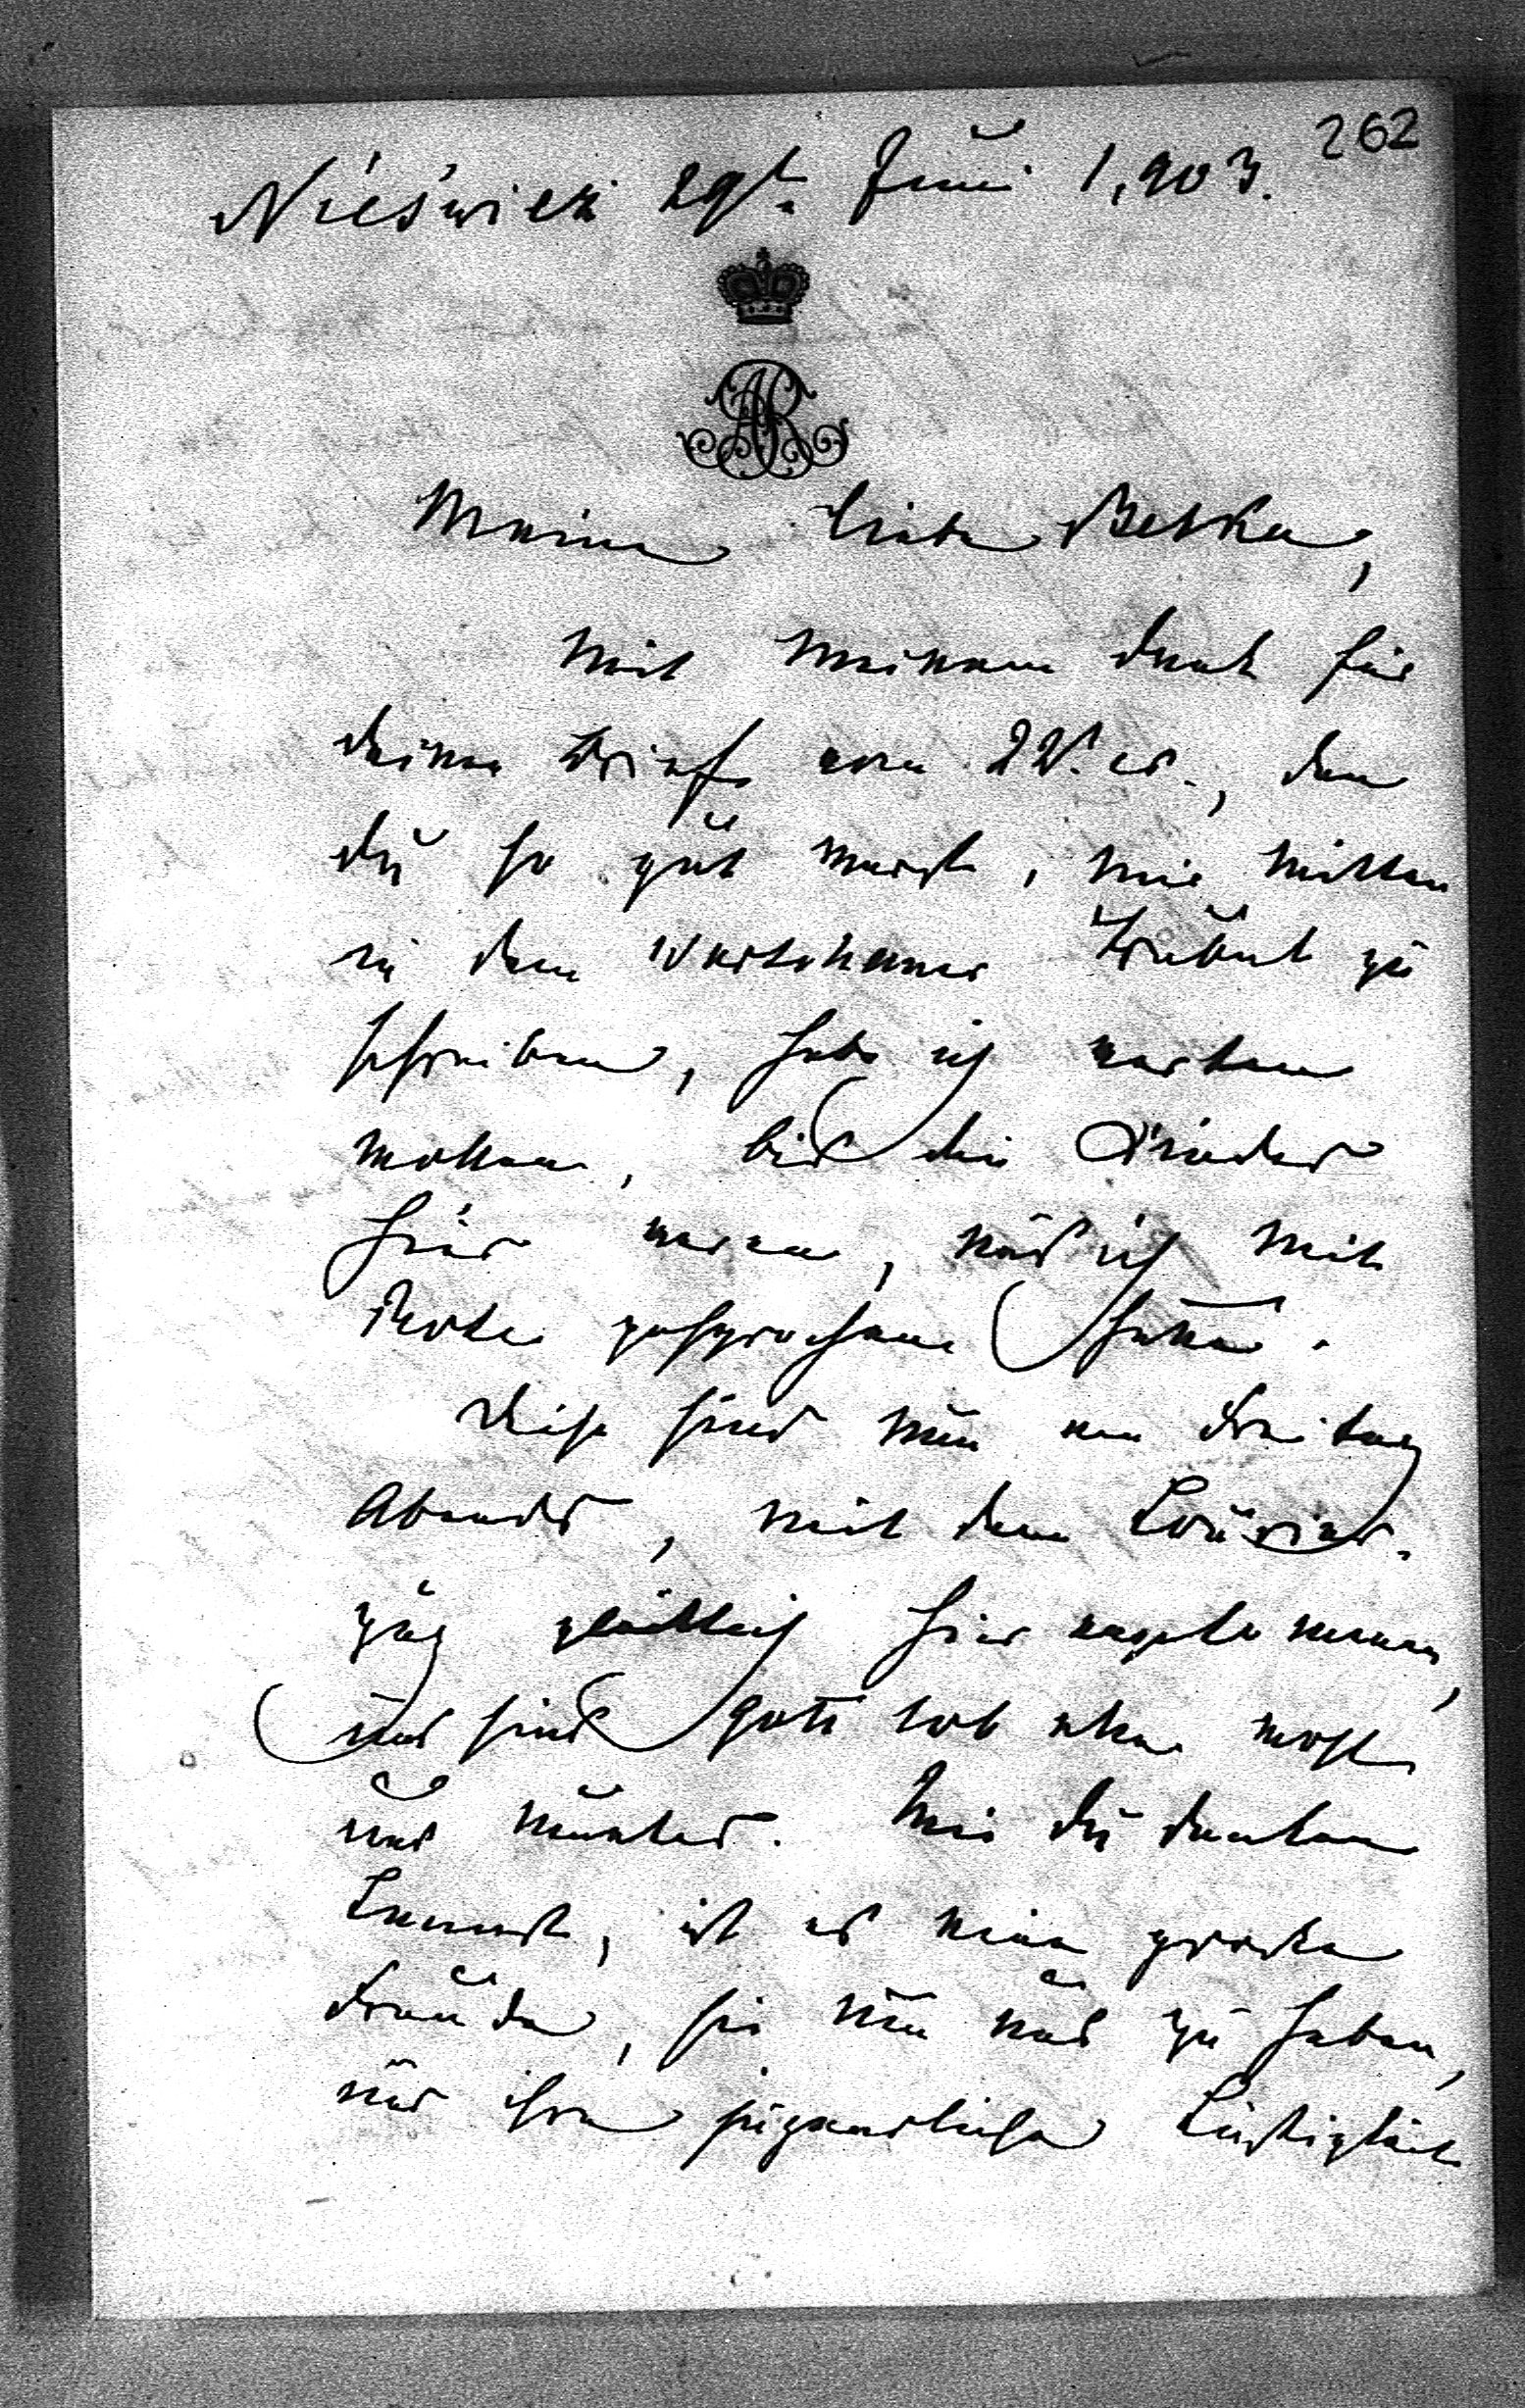 262
Nieśwież 29t. Juni 1,903.
AR
Meine liebe Betka,
Mit meinem Dank für
deinen Brief vom 22t. er., den
du so gut warst, mir mitten
in dem Warschauer Trubel zu
schreiben, habe ich warten
wollen, bis die Kinder
hier waren, und ich mit
Rote gesprochen hätte.
Diese sind nun am Freitag
Abends, mit dem Courier-
zug glücklich hier angekommen,
und sind Gott lob alle wohl
und munter. Wie du denken
kannst, ist es eine grosse
Freude, sie nun uns zu haben,
und ihre jugendliche Lustigkeit